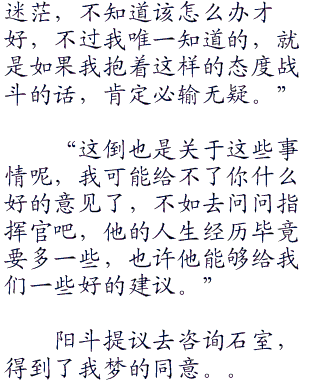 迷茫，不知道该怎么办才
好，不过我唯一知道的，就
是如果我抱着这样的态度战
斗的话，肯定必输无疑。”
“这倒也是关于这些事
情呢，我可能给不了你什么
好的意见了，不如去问问指
挥官吧，他的人生经历毕竟
要多一些，也许他能够给我
们一些好的建议。”
阳斗提议去咨询石室，
得到了我梦的同意。。